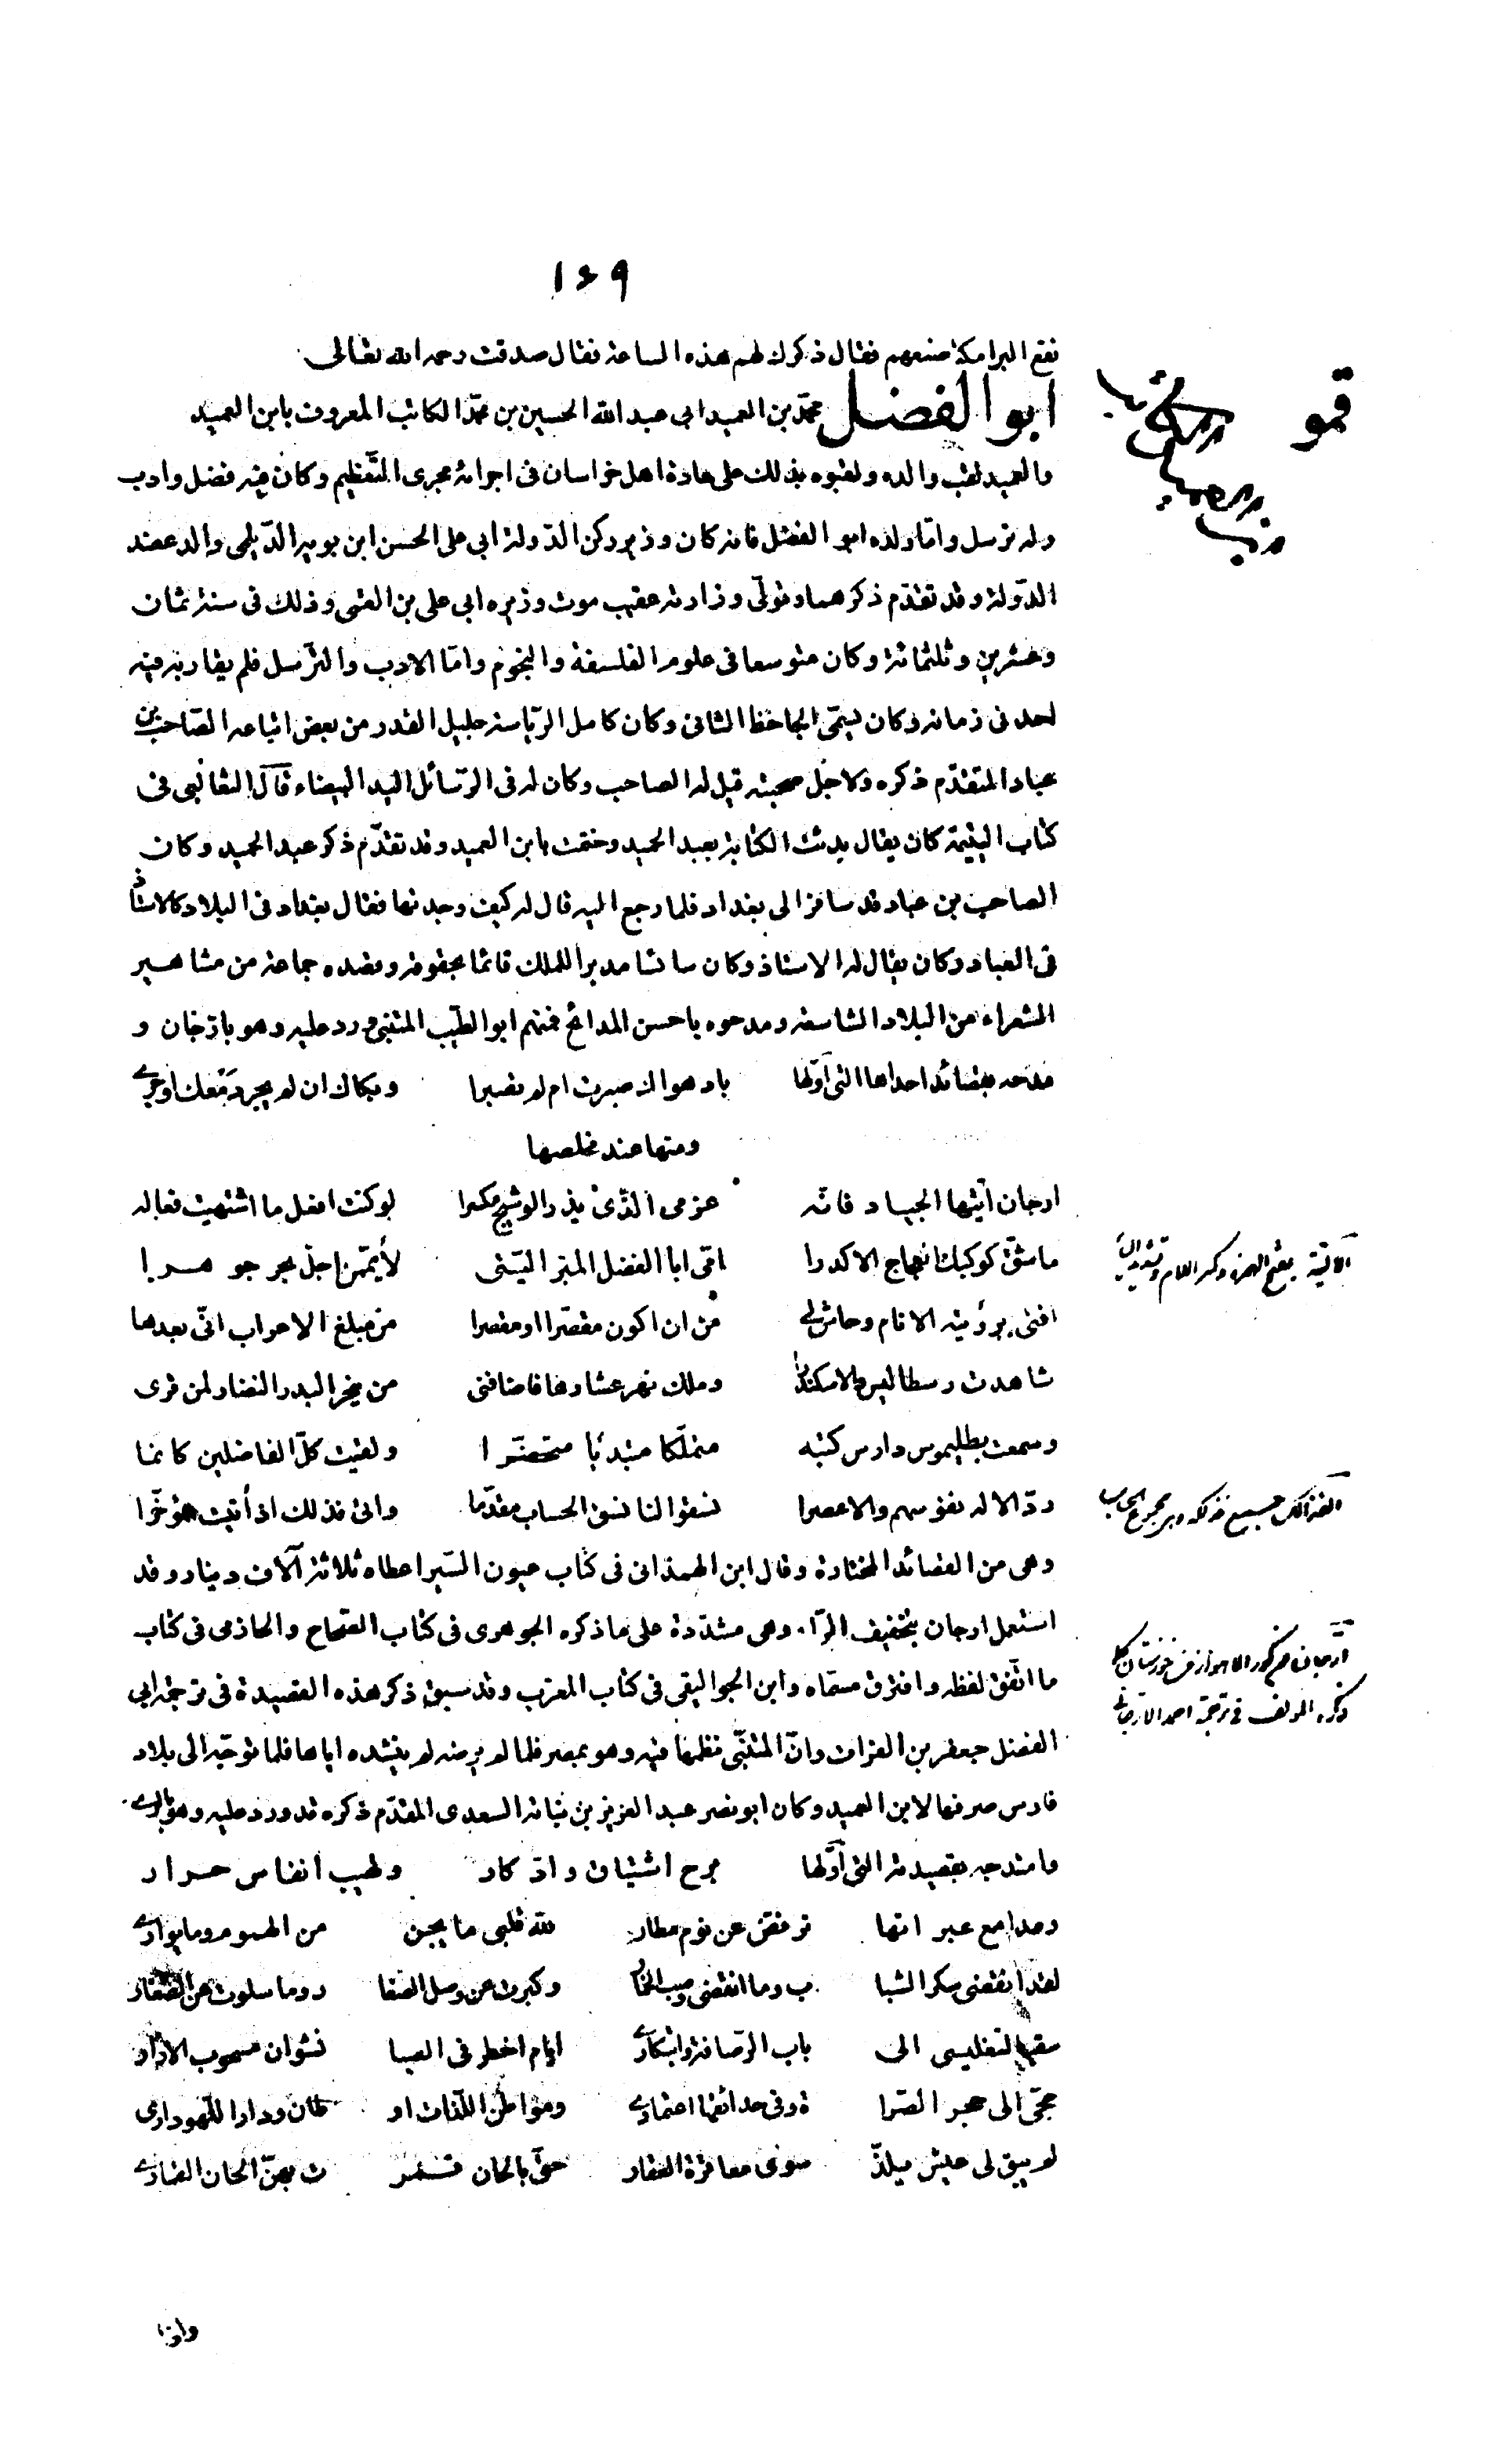 ١٤٩
نفع البرامكة صنعهم فقال ذكرك لهم هذه الساعة فقال صدقت رحمه الله تعالى
ابو الفضل محمّد بن العميد ابى عبد الله الحسين بن محمّد الكاتب المعروف بابن العميد
والعميد لقب والده ولقبوه بذلك على عادة اهل خراسان فى اجرائه مجرى التّعظيم وكان فيه فضل وادب
وله ترسل وامّا ولده ابو الفضل فانه كان وزير ركن الدّولة ابى على الحسن ابن بويه الدّيلمى والد عضد
الدّولة وقد تقدّم ذكرهما وتولّى وزارته عقيب موت وزيره ابى على بن القمى وذلك فى سنة ثمان
وعشرين وثلثمائة وكان متوسعا فى علوم الفلسفة والنجوم وامّا الادب والترّسل فلم يقاربه فيه
احد فى زمانه وكان يسمّى الجاحظ الثانى وكان كامل الرّياسة جليل القدر من بعض اتباعه الصّاحب بن
عباد المتقدّم ذكره ولاجل صحبته قيل له الصاحب وكان له فى الرّسائل اليد البيضاء قال الثعالبى فى
كتاب اليتيمة كان يقال بدئت الكتابة بعبد الحميد وختمت بابن العميد وقد تقدّم ذكر عبد الحميد وكان
الصاحب بن عباد قد سافر الى بغداد فلما رجع اليه قال له كيف وجدتها فقال بغداد فى البلاد كالاستاذ
فى العباد وكان يقال له الاستاذ وكان سائسا مدبرا للملك قائما بحقوقه وقصده جماعة من مشاهير
الشعراء من البلاد الشاسعة ومدحوه باحسن المدائح فمنهم ابو الطّيب المتنبى ورد عليه وهو بارّجان و
مدحه بقصائد احداها التى اوّلها باد هواك صبرت ام لم تصبرا وبكاك ان لم يجر دمعك او جرى
ومنها عند مخلصها
ارجان ايّتها الجياد فانّه عزمى الّذى يذر الوشيج مكسرا لو كنت افعل ما اشتهيت فعاله
ما شقّ كوكبك العجاج الاكدرا امّى ابا الفضل المبرّ اليّتى لأيمّمن اجلّ بحر جوهرا
افتى برؤيته الانام وحاش لى من ان اكون مقصّرا او مقصرا من مبلغ الاعراب انّى بعدها
شاهدت رسطاليس والاسكندرا ومللت نحر عشارها فاضافنى من ينحر البدر النضار لمن قرى
وسمعت بطليموس دارس كتبه متملّكا متبدّيا متحضّرا ولقيت كلّ الفاضلين كانما
ردّ الاله نفوسهم والاعصرا نسقوا لنا نسق الحساب مقدّما واتى فذلك اذ أتيت مؤخّرا
وهى من القصائد المختارة وقال ابن الهمذانى فى كتاب عيون السّير اعطاه ثلاثة آلاف دينار وقد
استعمل ارجان بتخفيف الرّاء وهى مشدّدة على ما ذكره الجوهرى فى كتاب الصّحاح والحازمى فى كتاب
ما اتّفق لفظه وافترق مسمّاه وابن الجواليقى فى كتاب المعرب وقد سبق ذكر هذه القصيدة فى ترجمة ابى
الفضل جعفر بن الفرات وانّ المتنبّى نظمها فيه وهو بمصر فلما لم يرضه لم ينشده اياها فلما توجّه الى بلاد
فارس صرفها لابن العميد وكان ابو نصر عبد العزيز بن نباتة السعدى المقدّم ذكره قد ورد عليه وهو بالرى
وامتدحه بقصيدته التى اوّلها برح اشتياق وادّكار ولهيب انفاس حرار
ومدامع عبراتها ترفضّ عن نوم مطار للّه قلبى ما يجن من الهموم وما يوارى
لقد انقضى سكر الشبا ب وما انقضى وصب الخمار وكبرت عن وصل الصغا ر وما سلوت عن الصّغار
سقيا لتغليسى الى باب الرّصافة وابتكارى ايّام اخطر فى الصبا نشوان مسحوب الازار
حجّى الى حجر الصّرا ة وفى حدائقها اعتمارى ومواطن اللّذات او طان ودار اللّهو دارى
لم يبق لى عيش يلذّ سوى معاقرة العقار حتّى بالحان قسمر ت بهنّ الحان القمارى
الاليّة بفتح الهمزة وكسر اللام وتشديد الياء
الفذالك جمع فذلكه وهى مجموع الحساب
ارّجان من كور الاهواز من خوزستان كما
ذكره المولف فى ترجمة احمد الارّجانى
واذا